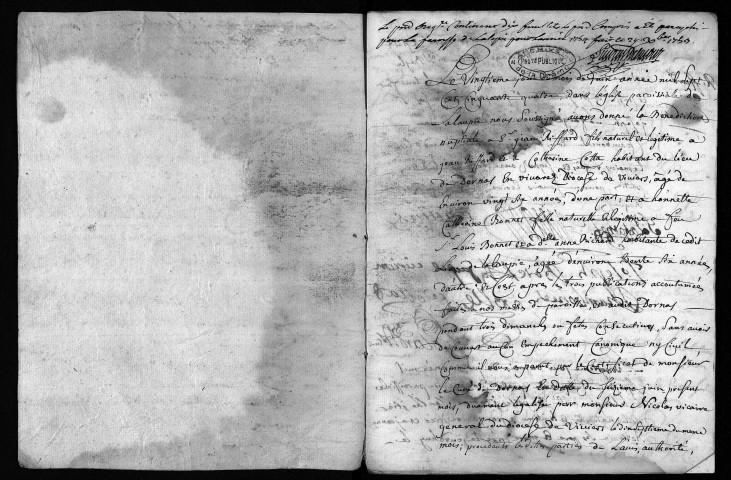 Le p.nt Reg.e Contenant dix feuillets le p.nt Compris a été paraphé
pour la paroisse de Laloupie pour l'année 1754 fait ce 24 X.bre 1753
ARCHIVES
PUBLIQUE
de la Drôme
Le Vingtieme du mois de Juin année mil Sept
Cent Cinquante quatre dans l'église paroissiale de
Laloupie nous Soussigné avons donné la Benediction
nuptiale a S.r jean Riffard fils naturel et legitime a
jean Riffard et a Catherine Cotta habitant du lieu
de Dornas En vivarez Diocese de viviers, agé de
Environ vingt Six années, d'une part, et a honnette
Catherine Bonnet fille naturelle et legitime a feu
S.r Louis Bonnet et a d.lle anne Richard habitante de cedit
Lieu de laloupie, agée d'environ trente Six années,
d'autre, et C'est apres les trois publications accoutumées
faites a nos messes de paroisse, et audit Dornas
pendant trois dimanches ou fetes Consecutives, Sans avoir
decouvert aucun Empechement Canonique ny Civil
Comme il nous apparoit par le Certificat de monsieur
le Curé de Dornas En datte du Sixieme juin present
mois, duement legalisé par monsieur Nicolas vicaire
general du diocese de Viviers le dixseptieme du meme
mois, procedants lesdites parties de l'avis, authorité,